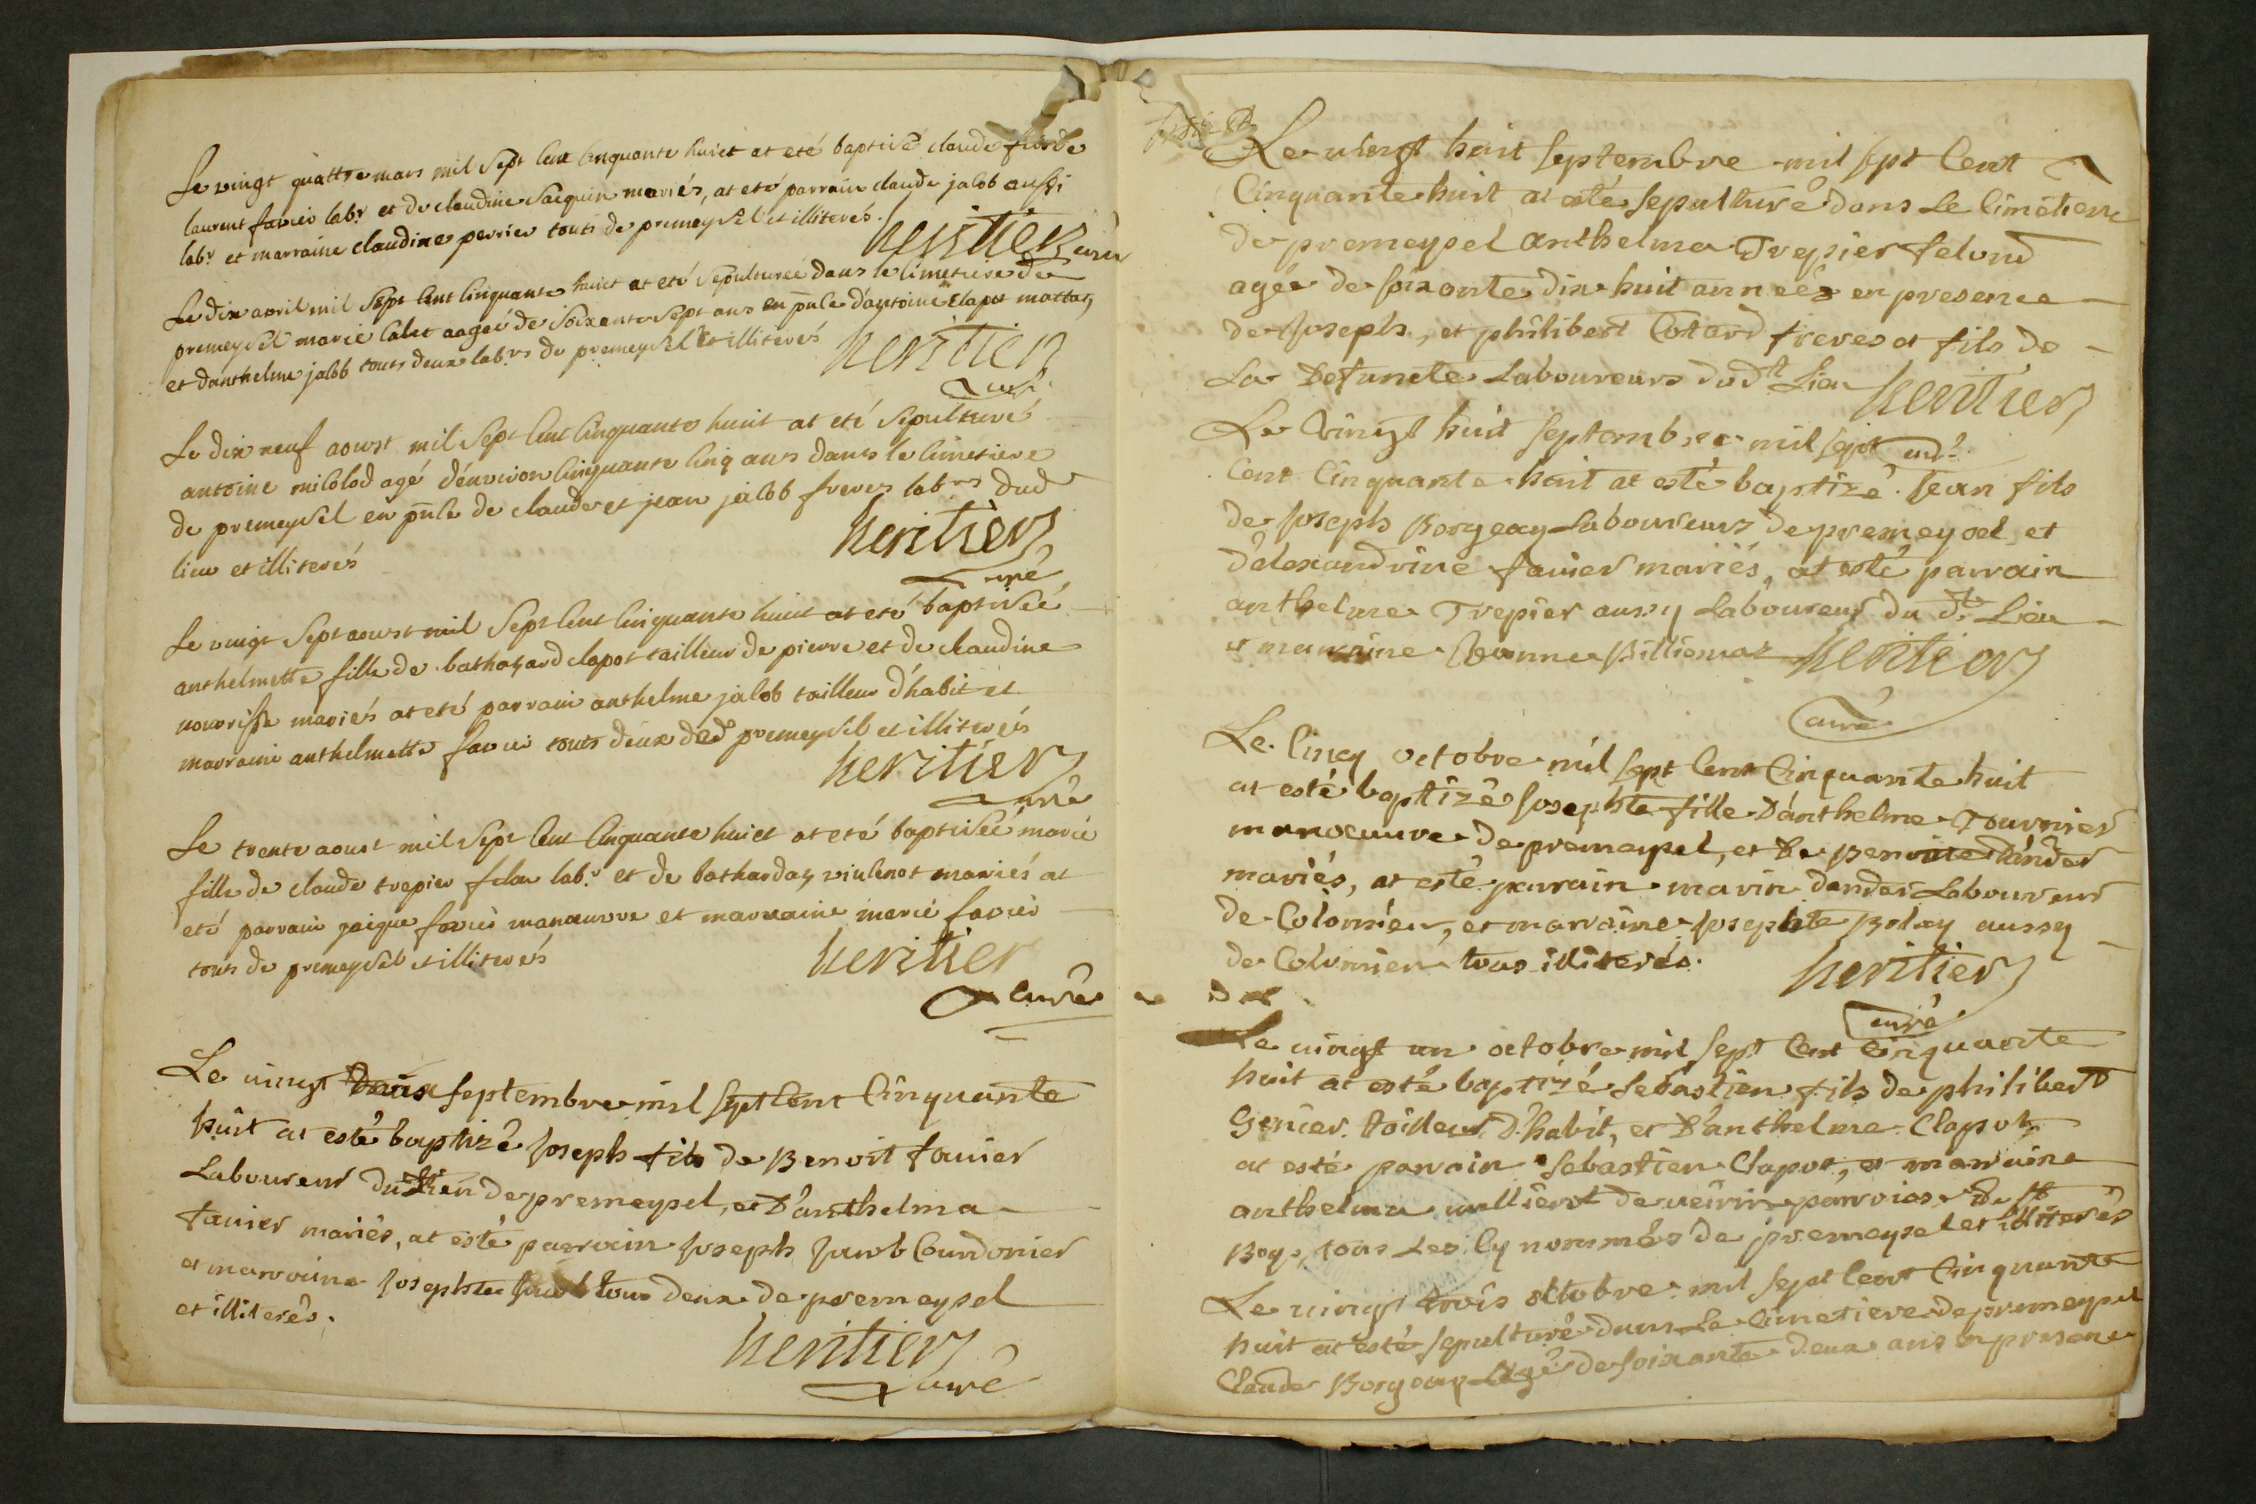 Le vingt quattre mars mil sept cent cinquante huict at eté baptisé claude fils de
laurent favier labr et de claudine Jacquin mariés, at eté parrain claude jalob aussi
labr et marraine claudine perrier touts de premeysel et illiterés.
heritier curé
Le dix avril mil sept cent cinquante huict at eté sepulturée dans le cimetiere de
premeysel marie calet aageé de soixante sept ans en pnce d'antoine clapot
et danthelme jalob touts deux labrs de premeysel et illiterés
heritier
curé
Le dix neuf aoust mil sept cent cinquante huit at eté sepulturé
antoine agé d'environ cinquante cinq ans dans le cimetiere
de premeysel en pnce de claude et jean jalob freres labrs dud
lieu et illiterés
heritier
curé
Le vingt sept aoust mil sept cent cinquante huict at eté baptisée
anthelmette fille de bathazard clapot tailleur de pierre et de claudine
nourrisse mariés at eté parrain anthelme jalob tailleur d'habit et
marraine anthelmette favier touts deux dud premeysel et illiterés
heritier
curé
Le trente aoust mil sept cent cinquante huict at eté baptisée marie
fille de claude trepier labr et de mariés at
eté parrain jaique favier manœuvre et marraine marie favier
touts de premeysel et illiterés
heritier
curé
Le vingt septembre mil sept cent cinquante
huit at esté baptizé Joseph fils de Benoit favier
Laboureur du Lieu de premeysel, et D'anthelma
favier mariés, at esté parrain Joseph Jacob Courdonier
et marraine Josephte Jacob tous deux de premeysel
et illiterés.
heritier
curé
Le vingt huit septembre mil sept Cent
Cinquante huit at esté sepulturé dans Le Cimetiere
de premeysel anthelma Trepier felond
agée de soixante dix huit années en presence
de Joseph, et philibert Cottard freres et fils de
La Defuncte Laboureurs dudt Lieu
heritier
curé
Le vingt huit septembre mil sept
Cent Cinquante huit at esté baptizé Jean fils
de Joseph Borgeay Laboureur de premeysel et
d'alexandrine favier mariés, at esté parrain
anthelme Trepier aussy Laboureur du dt Lieu
et marraine Jeanne Billiemaz
heritier
curé
Le Cincq octobre mil sept Cent Cinquante huit
at esté baptizé Josephte fille D'anthelme Tournier
manoeuvre de premeysel, et De Benoite Dander
mariés, at esté parrain marin dander Laboureur
de Colomieu, et marraine Josephte Bolay aussy
de Colomieu tous illiterés.
heritier
curé
Le vingt un octobre mil sept Cent Cinquante
huit at esté baptizé Sebastien fils de philibert
Genier tailleur D'habit, et D'anthelme Clapot
at esté parrain Sebastien Clapot, et marraine
anthelma de veirin parroisse de St
Boy, tous Les Cy nommés de premeysel et illiterés
Le vingt trois octobre mil sept cent Cinquante
huit at esté sepulturé dans Le Cimetiere de premeysel
Claude Borgeay agé de soixante deux ans en presence